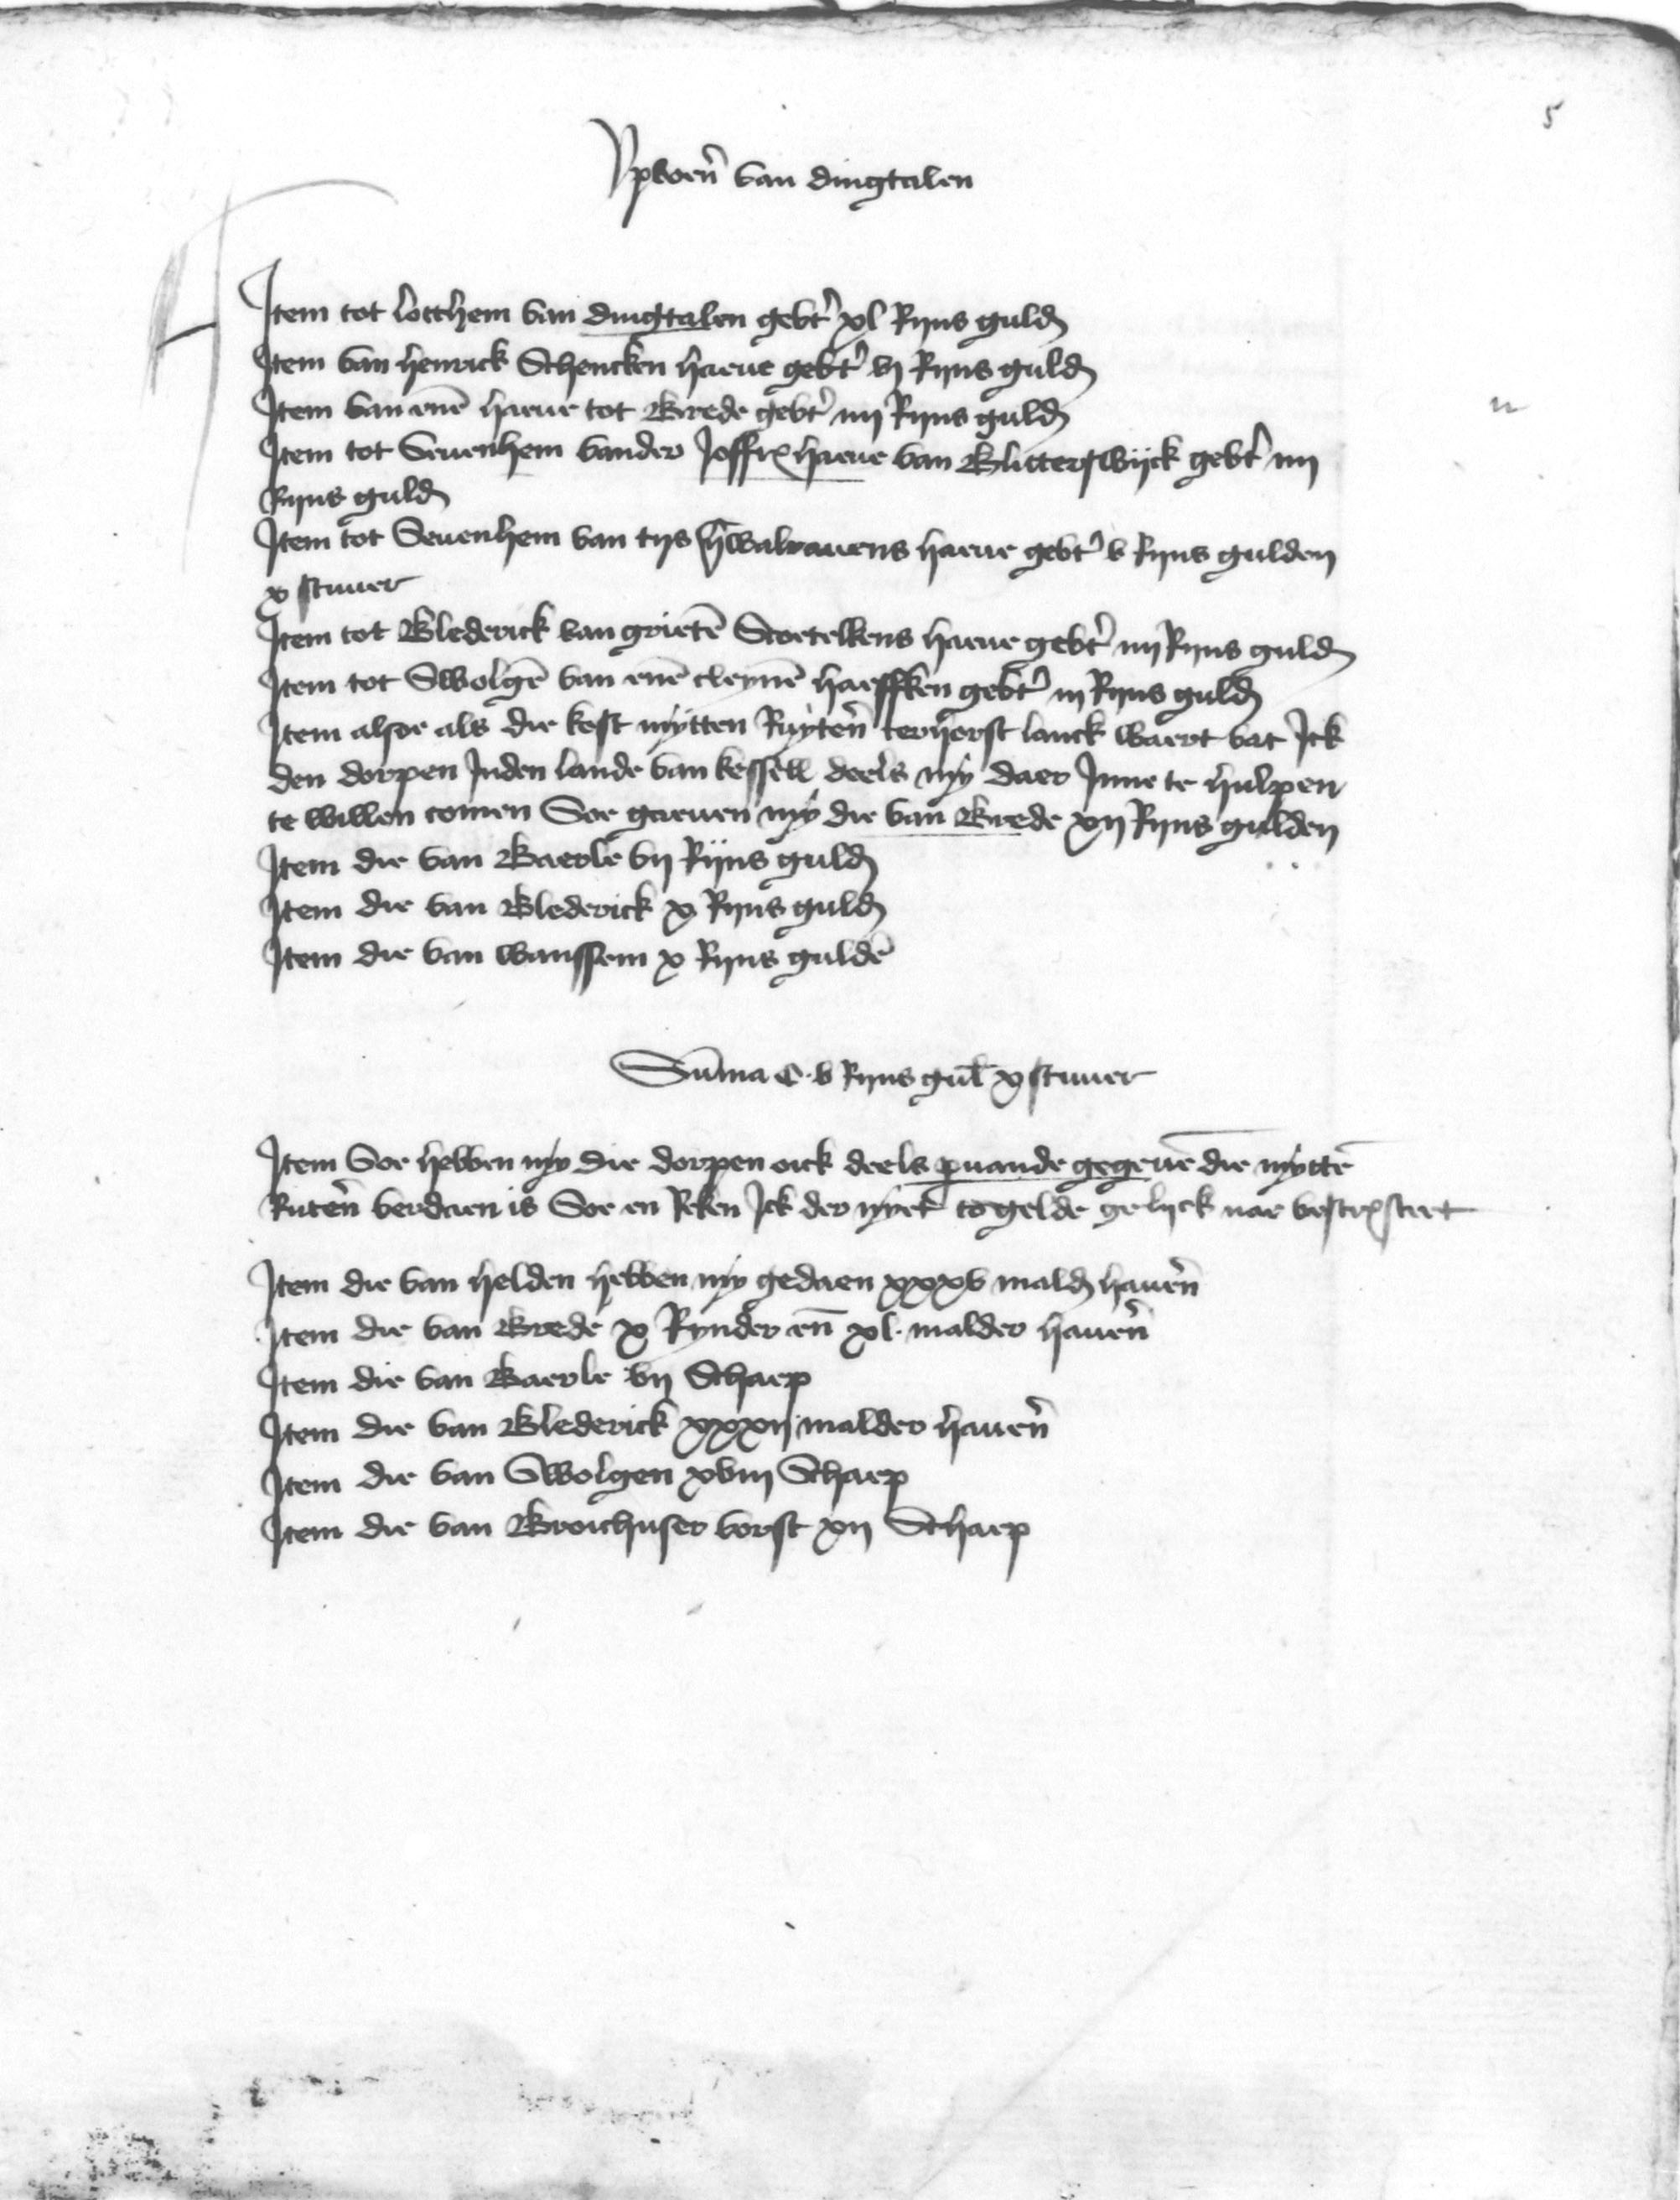 5
Upboer̃ van dingtalen
Item tot Lotthem van dingtalen gebt' xl Rijns guld
Item van Henrick Schencken haeue gebt' vj Rijns guld
Item van enē haeue tot Brede gebt' iiij Rijns guld
Item tot Seuenhem vander Joffr haeue van Blitterswijck gebt' iiij
Rijns guld
Item tot Seuenhem van tijs walrauens haeue gebt' v Rijns gulden
x stuuer
Item tot Blederick van grietē Stoetelkens haeue gebt' iiij Rijns guld
Item tot Swolgē van enē cleynē haeffken gebt' iij Rijns guld
Item alsoe als die kost mytten Ruyter̃ terhorst lanck waert bat Ick
den dorpen Inden lande van kessell deels my daer Inne te hulpen
te willen comen Soe gaeuen my die van Brede xij Rijns gulden
Item die van Baerle vij Rijns guld
Item die van Blederick x Rijns guld
Item die van wanssem x Rijns guldē
Sūma C v Rijns gul x stuuer
Item Soe hebben my die dorpen oick deels prouande gegeuē die myttē
Ruter̃ verdaen is Soe en Reken Ick der nyet to gelde gelijck nae bescr steet
Item die van helden hebben my gedaen xxxv mald hauer̃
Item die van Brede x Rynder eñ xl malder hauer̃
Item die van Baerle vij Schaep
Item die van Blederick xxxij malder hauer̃
Item die van Swolgen xviij Schaep
Item die van Broichuser vorst xij Schaep